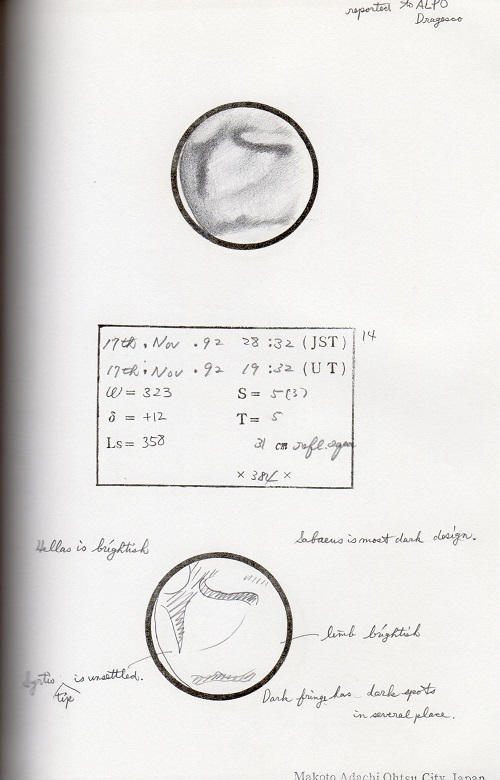 reported to ALPO
Dragesco
17th. Nov. 92 28:32 (JST)
14
17th. Nov. 92 19:32 (UT)
ω = 323 S = 5(3)
δ = +12 T = 5
Ls = 358 31 cm refl.
× 384 ×
Hellas is brightish
Sabaeus is most dark design.
limb brightish
Syrtis is unsettled.
tip
Dark fringe has dark spots
in several place.
Makoto Adachi Ohtsu City, Japan